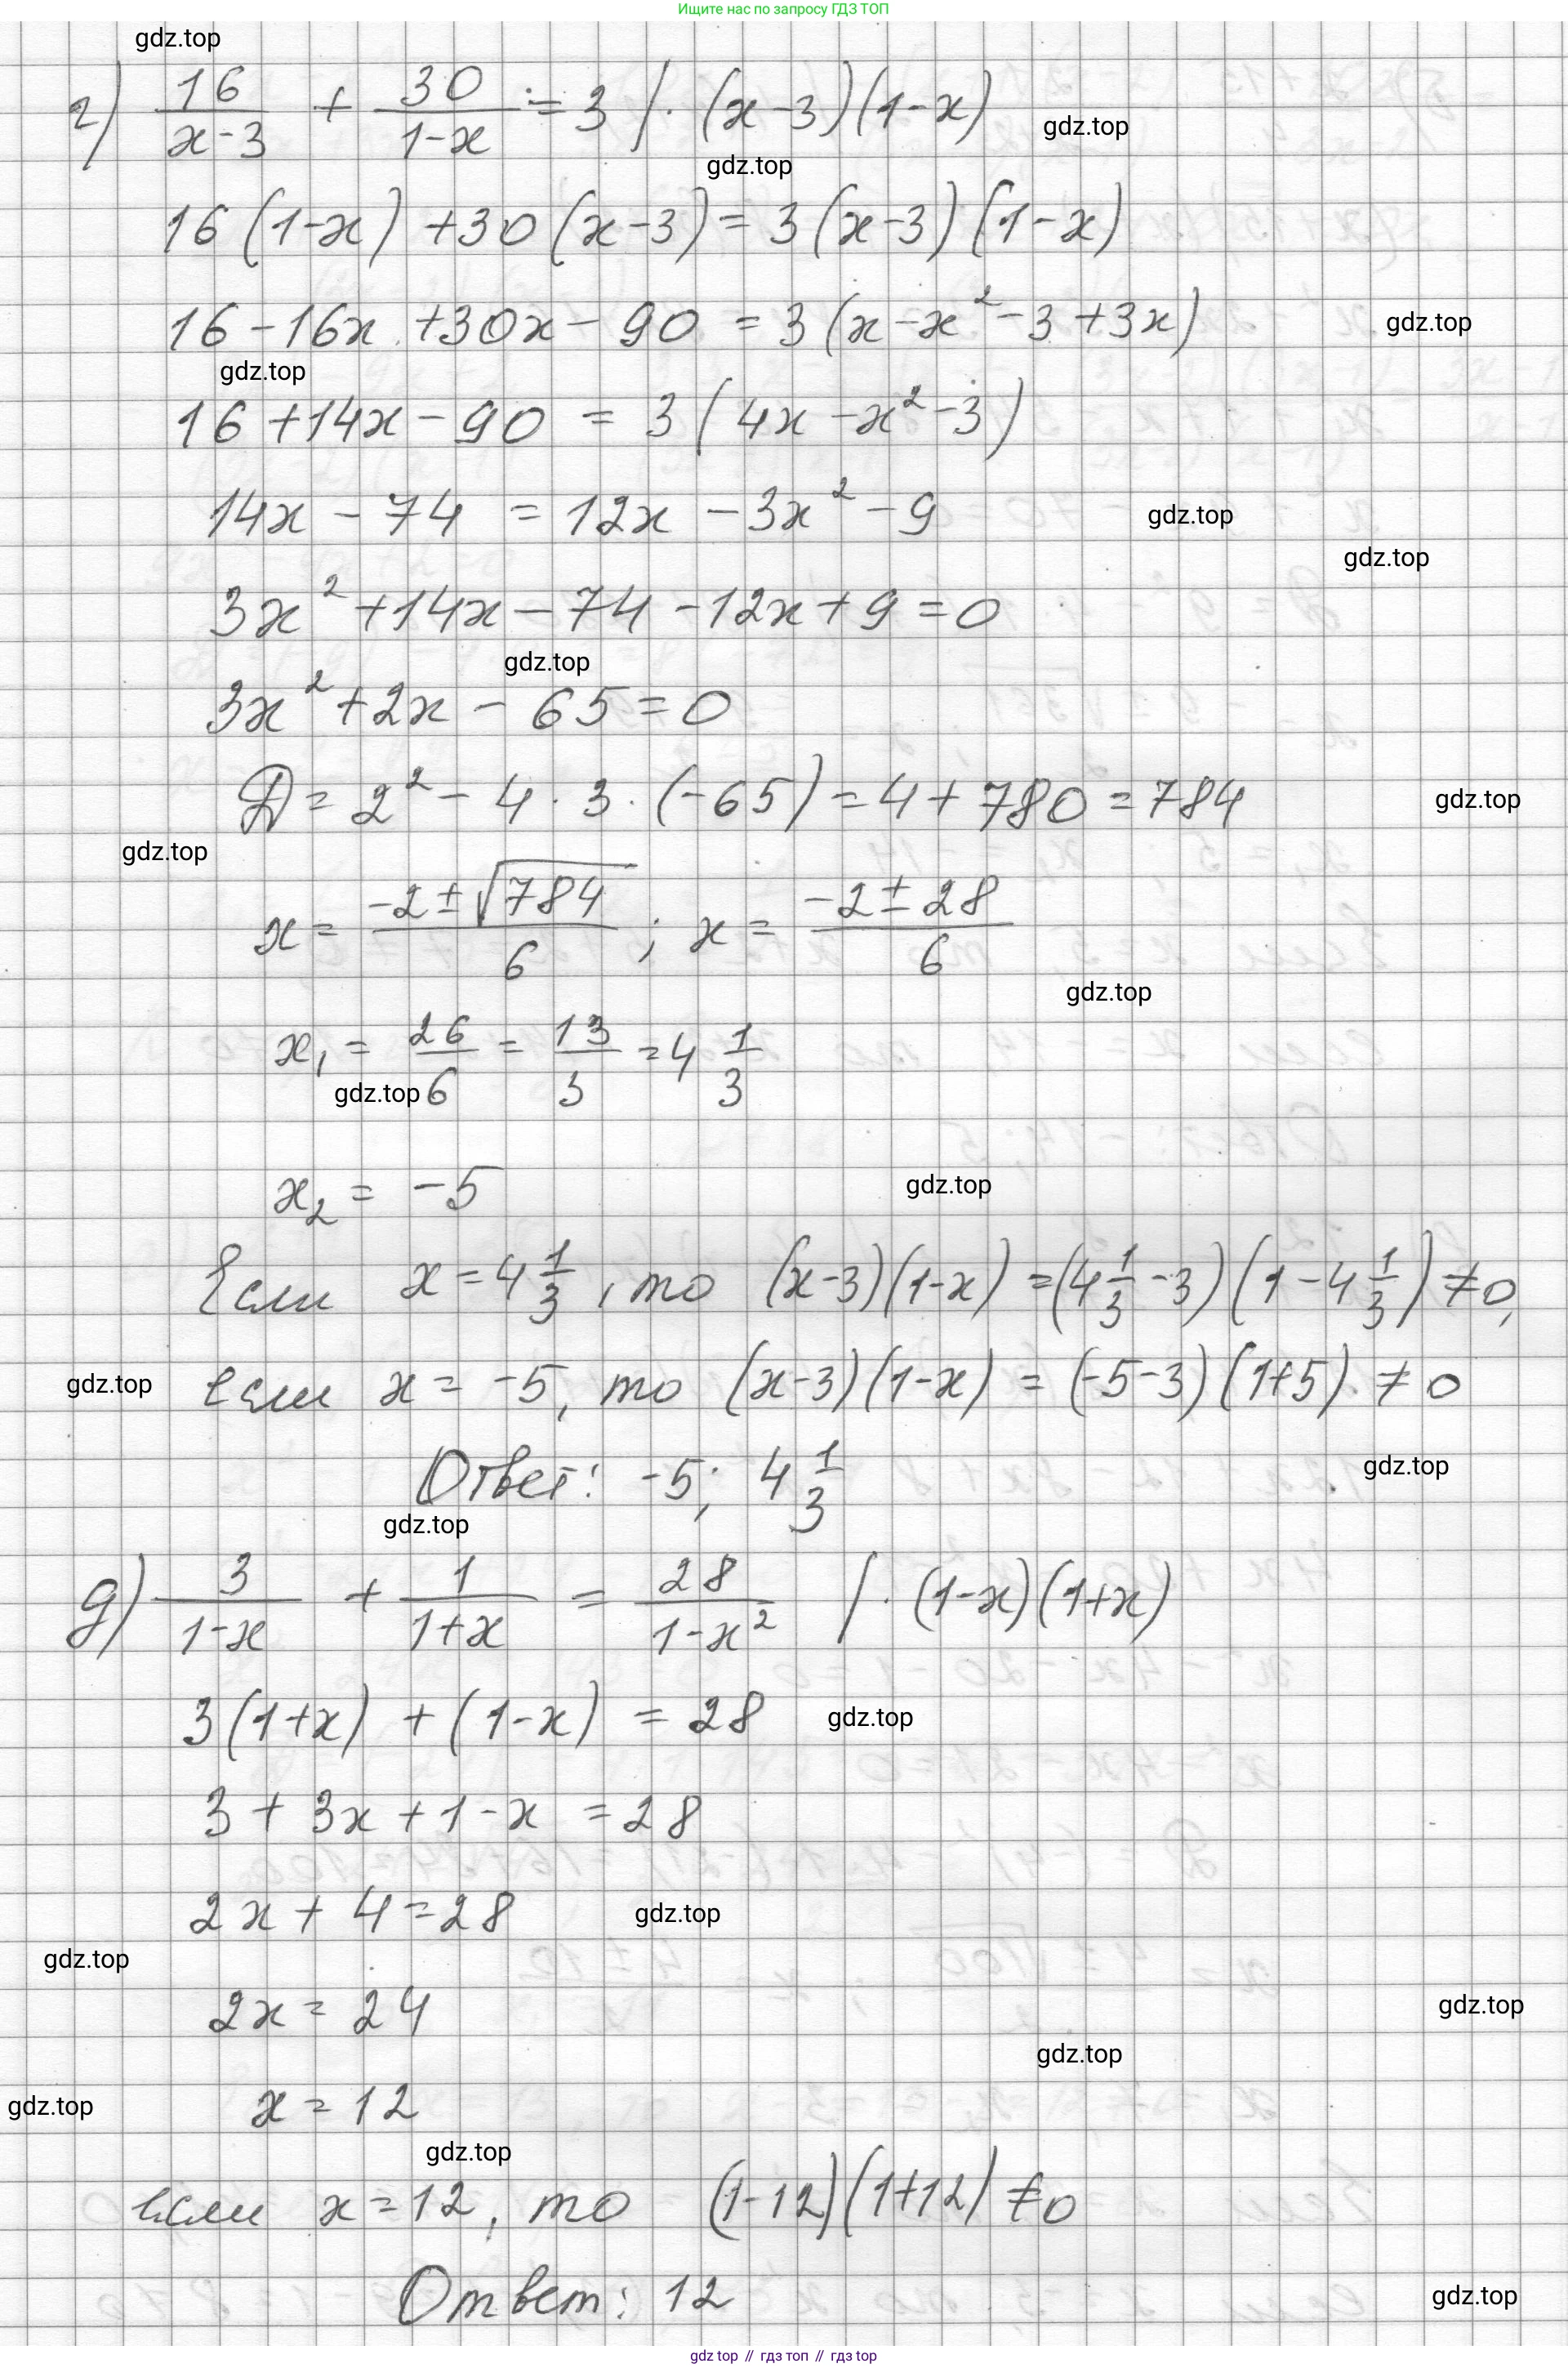 Ищите нас по запросу ГДЗ ТОП
gdz.top
г) 16/(x-3) + 30/(1-x) = 3 / · (x-3)(1-x)
gdz.top
gdz.top
16(1-x) + 30(x-3) = 3(x-3)(1-x)
16 - 16x + 30x - 90 = 3(x - x² - 3 + 3x)
gdz.top
gdz.top
16 + 14x - 90 = 3(4x - x² - 3)
14x - 74 = 12x - 3x² - 9
gdz.top
gdz.top
3x² + 14x - 74 - 12x + 9 = 0
gdz.top
3x² + 2x - 65 = 0
D = 2² - 4 · 3 · (-65) = 4 + 780 = 784
gdz.top
gdz.top
x = (-2 ± √784)/6 ; x = (-2 ± 28)/6
gdz.top
x₁ = 26/6 = 13/3 = 4 1/3
gdz.top
x₂ = -5
gdz.top
Если x = 4 1/3, то (x-3)(1-x) = (4 1/3 - 3)(1 - 4 1/3) ≠ 0,
gdz.top
если x = -5, то (x-3)(1-x) = (-5-3)(1+5) ≠ 0
Ответ: -5; 4 1/3
gdz.top
gdz.top
д) 3/(1-x) + 1/(1+x) = 28/(1-x²) / · (1-x)(1+x)
3(1+x) + (1-x) = 28
gdz.top
3 + 3x + 1 - x = 28
2x + 4 = 28
gdz.top
gdz.top
2x = 24
gdz.top
gdz.top
x = 12
gdz.top
gdz.top
если x = 12, то (1-12)(1+12) ≠ 0
Ответ: 12
gdz.top
gdz top // гдз топ // гдз top